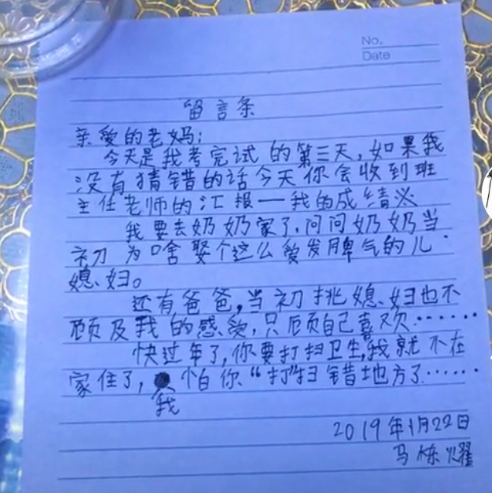 No.
Date
留言条
亲爱的老妈：
今天是我考完试的第三天，如果我
没有猜错的话今天你会收到班
主任老师的汇报—我的成绩单
我要去奶奶家了，问问奶奶当
初为啥娶个这么爱发脾气的儿
媳妇。
还有爸爸，当初挑媳妇也不
顾及我的感受，只顾自己喜欢……
快过年了，你要打扫卫生，我就不在
家住了，我怕你“打”扫错地方了……
2019年1月22日
马烁耀